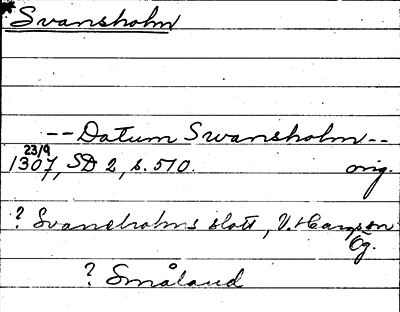 Svansholm
-- Datum Swansholm --
23/9
1307, SD 2, s. 510. orig.
? Svaneholms slott, V. Hargs sn
Ög.
? Småland